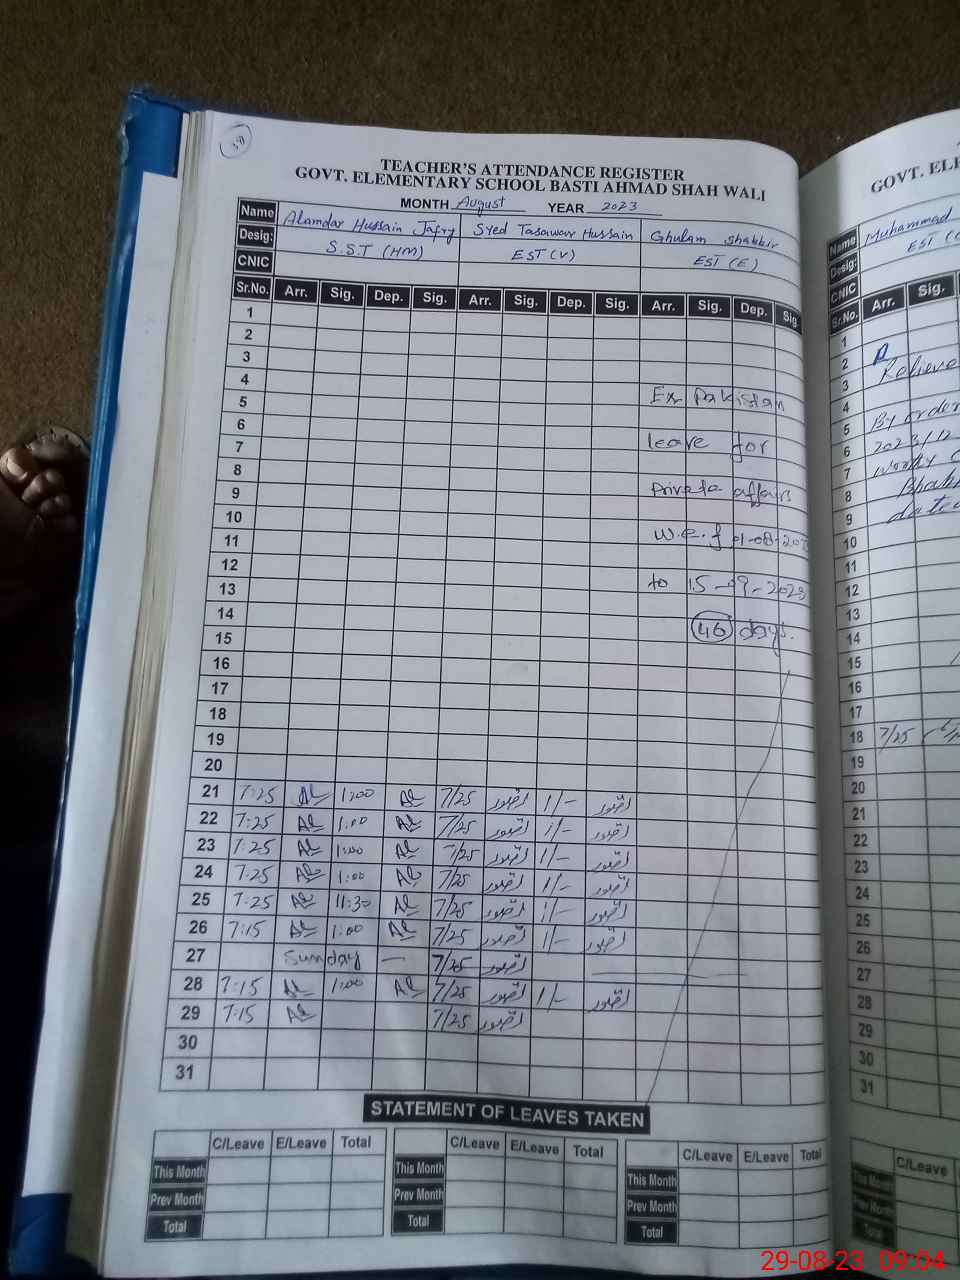 TEACHER'S ATTENDANCE REGISTER
GOVT. ELEMENTARY SCHOOL BASTI AHMAD SHAH WALI
MONTH August YEAR 2023
Name Alamdar Hussain Jafry Syed Tasawar Hussain Ghulam Shabbir
Desig: S.S.T (HM) EST (V) EST (E)
CNIC
Sr.No. Arr. Sig. Dep. Sig. Arr. Sig. Dep. Sig. Arr. Sig. Dep. Sig.
1
2
3
4
5 Ex Pakistan
6
7 leave for
8
9 Private affairs
10
11 w.e.f 01-08-202
12
13 to 15-09-2023
14
15 46 days.
16
17
18
19
20
21 7:25 1:00 7/25 1/-
22 7:25 1:00 7/25 1/-
23 7:25 1:00 7/25 1/-
24 7:25 1:00 7/25 1/-
25 7:25 11:30 7/25 1/-
26 7:15 1:00 7/25 1/-
27 Sunday — 7/25
28 7:15 1:00 7/25 1/-
29 7:15 7/25
30
31
STATEMENT OF LEAVES TAKEN
C/Leave E/Leave Total C/Leave E/Leave Total C/Leave E/Leave Total
This Month This Month This Month
Prev Month Prev Month Prev Month
Total Total Total
GOVT. ELE
Name Muhammad
Desig: EST (
CNIC
Sr.No. Arr. Sig.
1
2
3 Relieve
4
5 By order
6 2023/12
7 worthy
8
9 dated
10
11
12
13
14
15
16
17
18 7/25
19
20
21
22
23
24
25
26
27
28
29
30
31
C/Leave
This Month
Prev Month
Total
29-08-23 09:04